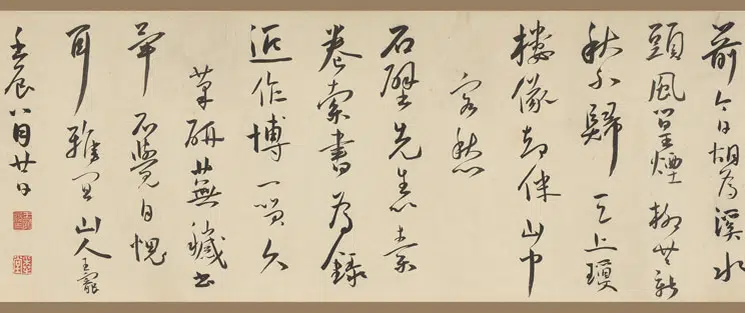 前今日胡為溪水
頭風煙
秋不歸天上瓊
樓却伴山中
客愁
石壁先生素
卷索書為錄
近作博一笑久
筆研蕪穢書
畢不覺自愧
耳雅宜山人王寵
壬辰八月廿日